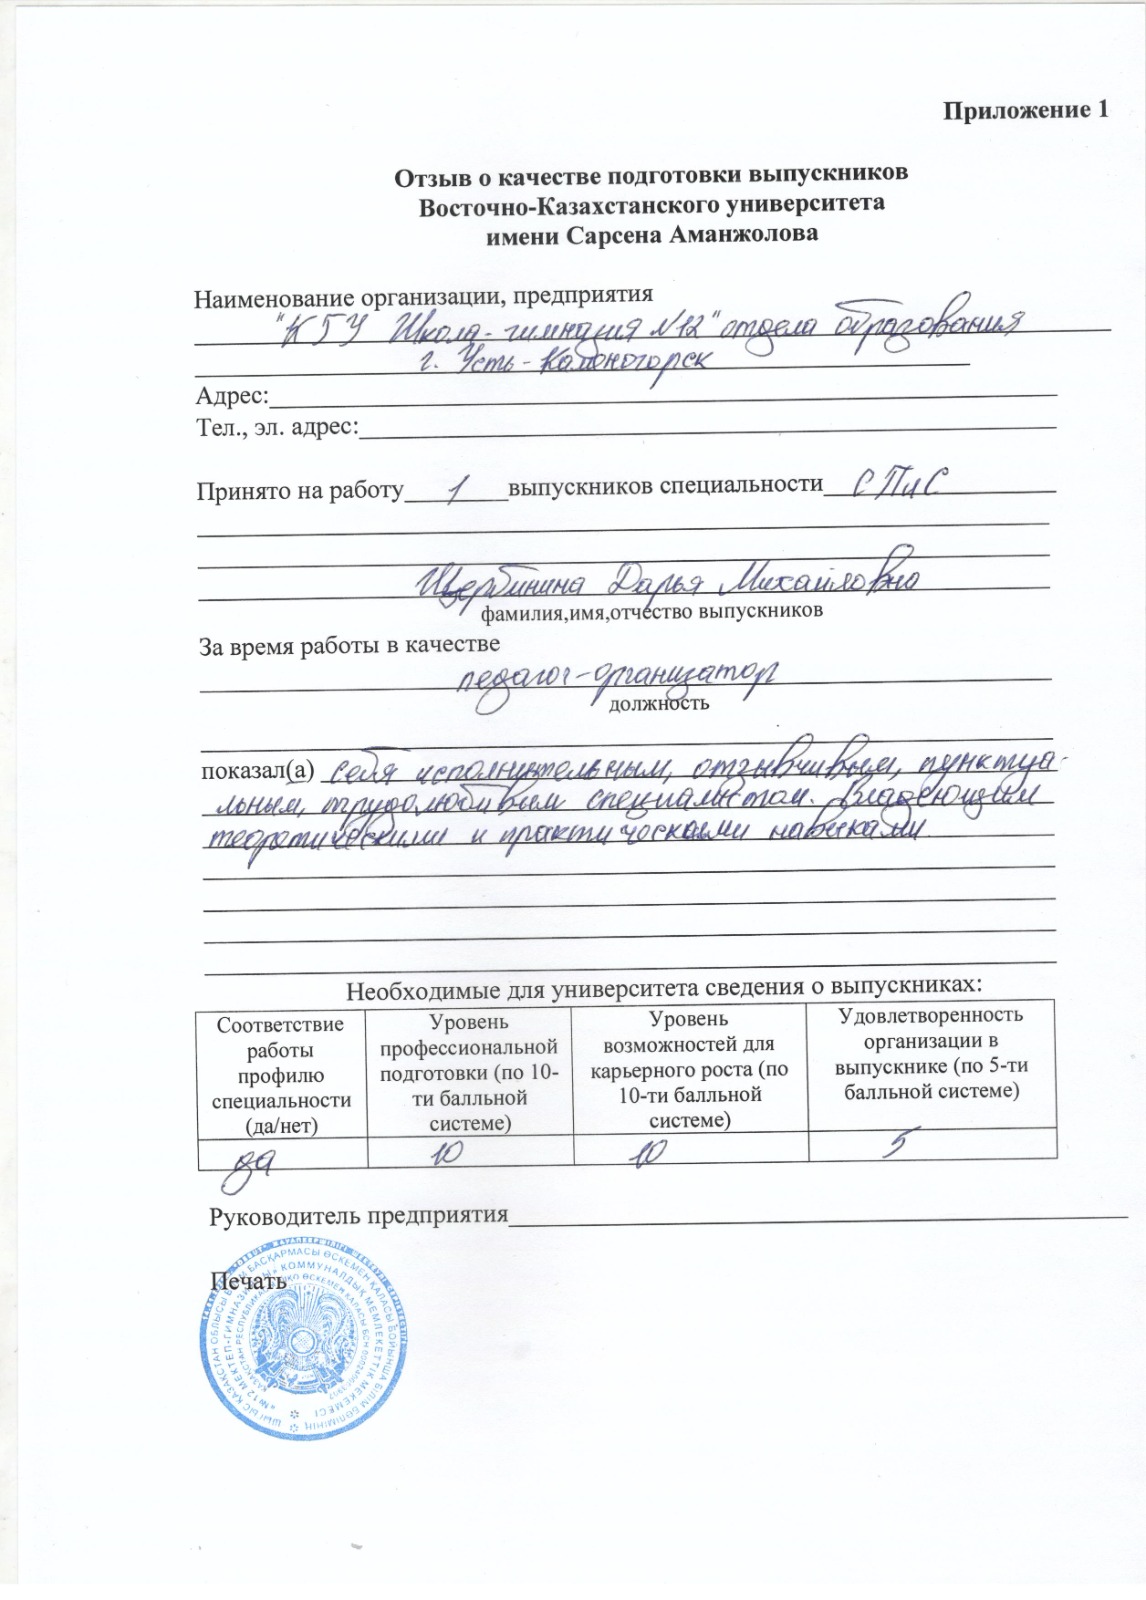 Приложение 1
Отзыв о качестве подготовки выпускников
Восточно-Казахстанского университета
имени Сарсена Аманжолова
Наименование организации, предприятия
"КГУ Школа-гимназия №12" отдела образования
г. Усть-Каменогорск
Адрес:
Тел., эл. адрес:
Принято на работу 1 выпускников специальности СПиС
Щербинина Дарья Михайловна
фамилия,имя,отчество выпускников
За время работы в качестве
педагог-организатор
должность
показал(а) себя исполнительным, отзывчивым, пунктуа-
льным, трудолюбивым специалистом. Владеющим
теоретическими и практическими навыками
Необходимые для университета сведения о выпускниках:
Соответствие работы профилю специальности (да/нет)
Уровень профессиональной подготовки (по 10-ти балльной системе)
Уровень возможностей для карьерного роста (по 10-ти балльной системе)
Удовлетворенность организации в выпускнике (по 5-ти балльной системе)
да 10 10 5
Руководитель предприятия
Печать
ШЫҒЫС ҚАЗАҚСТАН ОБЛЫСЫ БІЛІМ БАСҚАРМАСЫ ӨСКЕМЕН ҚАЛАСЫ БОЙЫНША БІЛІМ БӨЛІМІНІҢ
«№12 МЕКТЕП-ГИМНАЗИЯСЫ» КОММУНАЛДЫҚ МЕМЛЕКЕТТІК МЕКЕМЕСІ